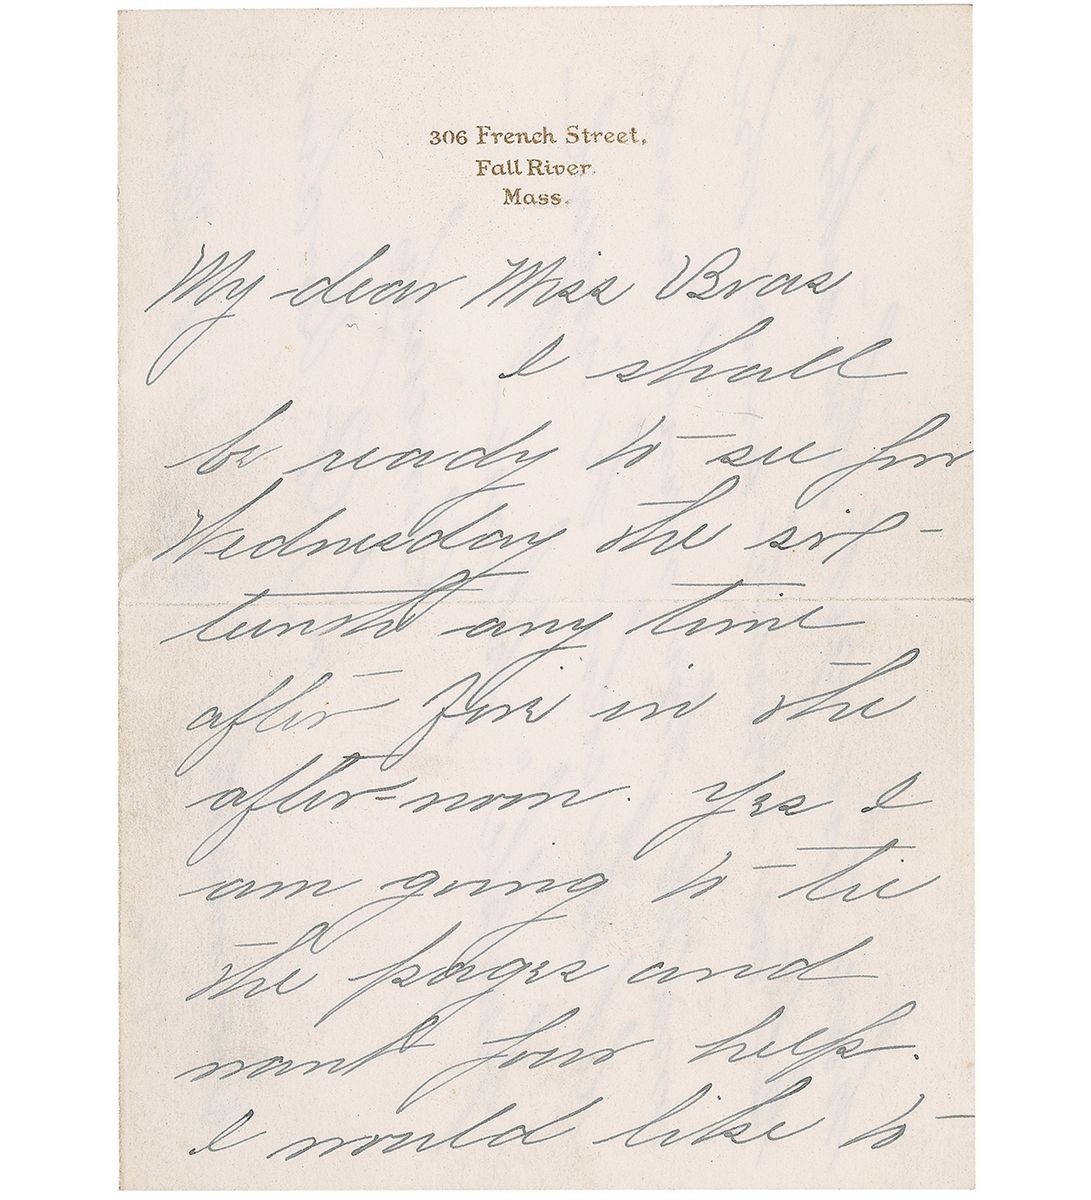 306 French Street,
Fall River.
Mass.
My dear Miss Bras
I shall
be ready to see you
Wednesday the six-
teenth any time
after five in the
after-noon. Yes I
am going to tie
the pages and
want your help.
I would like to